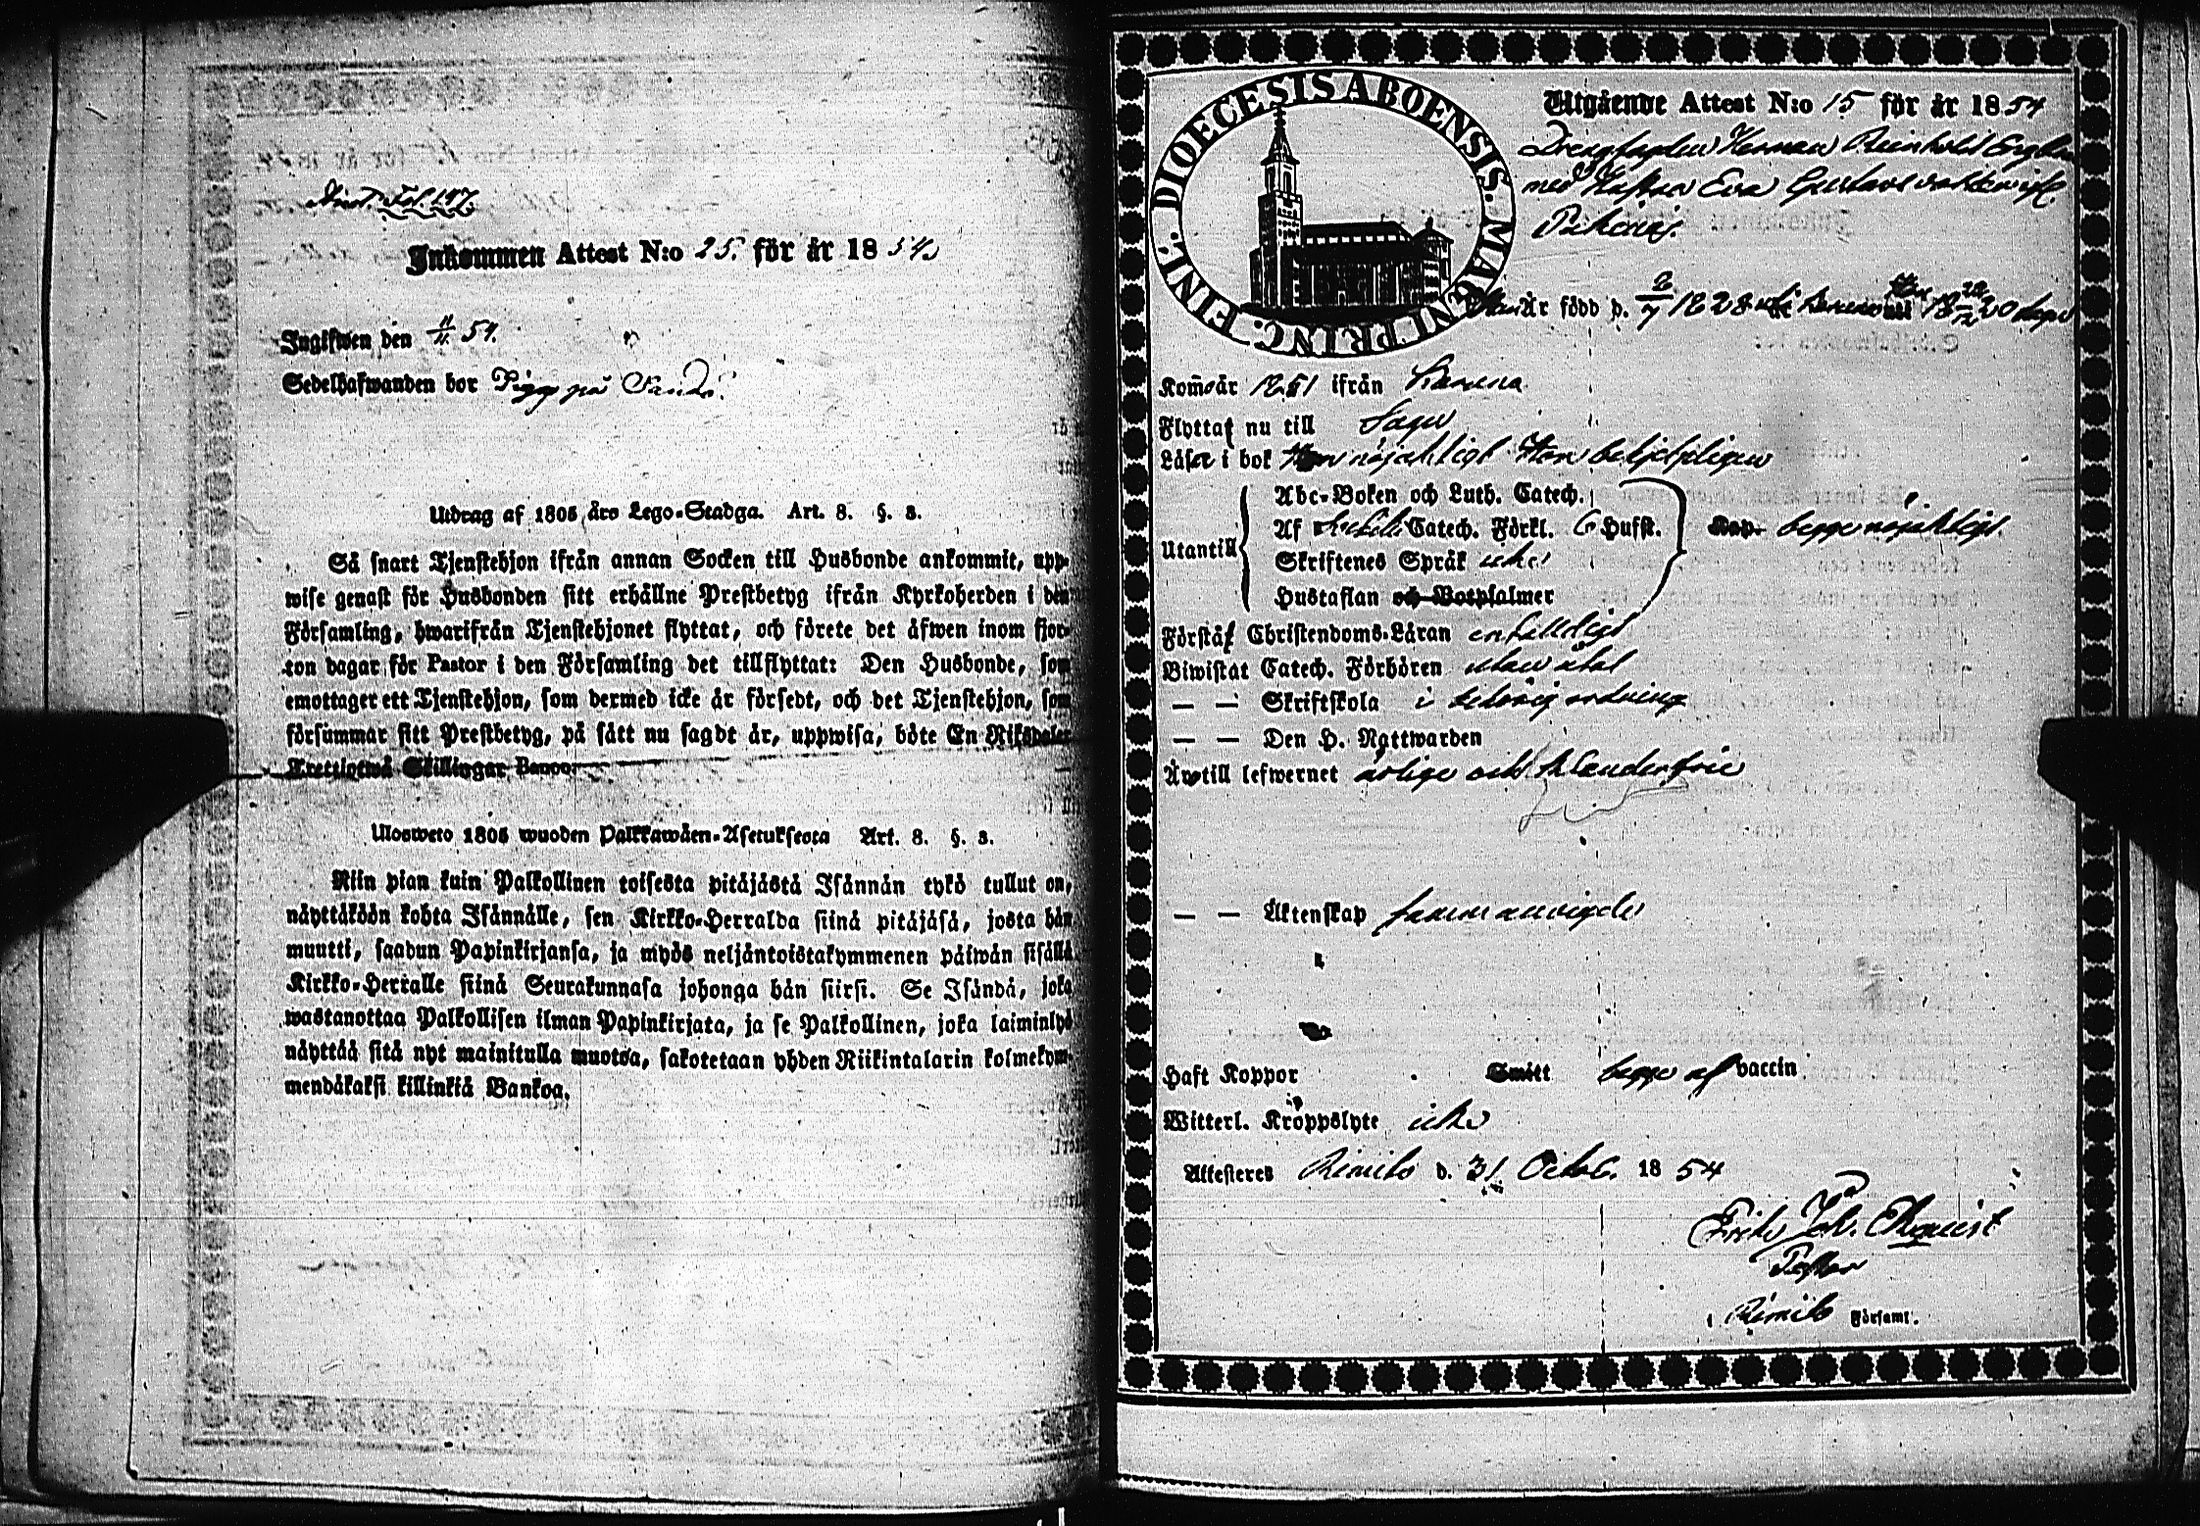 Inst. Fol. 147.
Inkommen Attest N:o 25. för år 1854.
Ingifwen den 11/11 54.
Sedelhafwanden bor Pigg på Sandö.
Utdrag af 1805 års Lego-Stadga. Art. 8. §. 3.
Så snart Tjenstehjon ifrån annan Socken till Husbonde ankommit, upp-
wise genast för Husbonden sitt erhållne Prestbetyg ifrån Kyrkoherden i den
Församling, hwarifrån Tjenstehjonet flyttat, och förete det äfwen inom fjor-
ton dagar för Pastor i den Församling det tillflyttat: Den Husbonde, som
emottager ett Tjenstehjon, som dermed icke är försedt, och det Tjenstehjon, som
försummar sitt Prestbetyg, på sätt nu sagdt är, uppwisa, böte En Riksdaler
Trettiotwå Skillingar Banco.
Ulosweto 1805 wuoden Palkkawäen-Asetuksesta Art. 8. §. 3.
Niin pian kuin Palkollinen toisesta pitäjästä Isännän tykö tullut on,
näyttäköön kohta Isännälle, sen Kirkko-Herralda siinä pitäjäsä, josta hän
muutti, saadun Papinkirjansa, ja myös neljäntoistakymmenen päiwän sisällä
Kirkko-Herralle siinä Seurakunnasa johonga hän siirsi. Se Isändä, joka
wastanottaa Palkollisen ilman Papinkirjata, ja se Palkollinen, joka laiminlyö
näyttää sitä nyt mainitulla muotoa, sakotetaan yhden Riikintalarin kolmekym-
mendäkaksi killinkiä Bankoa.
DIOECESIS ABOENSIS. MAGNI PRINC. FINL.
Utgående Attest N:o 15 för år 1854
Drengfogden Herman Reinhold
med Hustru Eva Gustava
är född d. 2/7 1828 i Karuna
Kom år 1851 ifrån Karuna
Flyttat nu till Sagu
Läser i bok Han nöjaktigt Hon behjelpligen
Utantill
Abc-Boken och Luth. Catech.
Af Catech. Förkl. 6 Hufst.
Skriftenes Språk icke
Hustaflan och Botpsalmer
begge nöjaktligt.
Förstår Christendoms-Läran enfaldigt
Biwistat Catech. Förhören utan åtal
— — Skriftskola i behörig ordning
— — Den H. Nattwarden
Är till lefwernet ärlige och klanderfrie
— — Äktenskap sammanvigde
Haft Koppor Smitt begge af vaccin
Witterl. Kroppslyte icke
Attesteres Rimito d. 31 Octob. 1854
Pastor
i Rimito Församl.